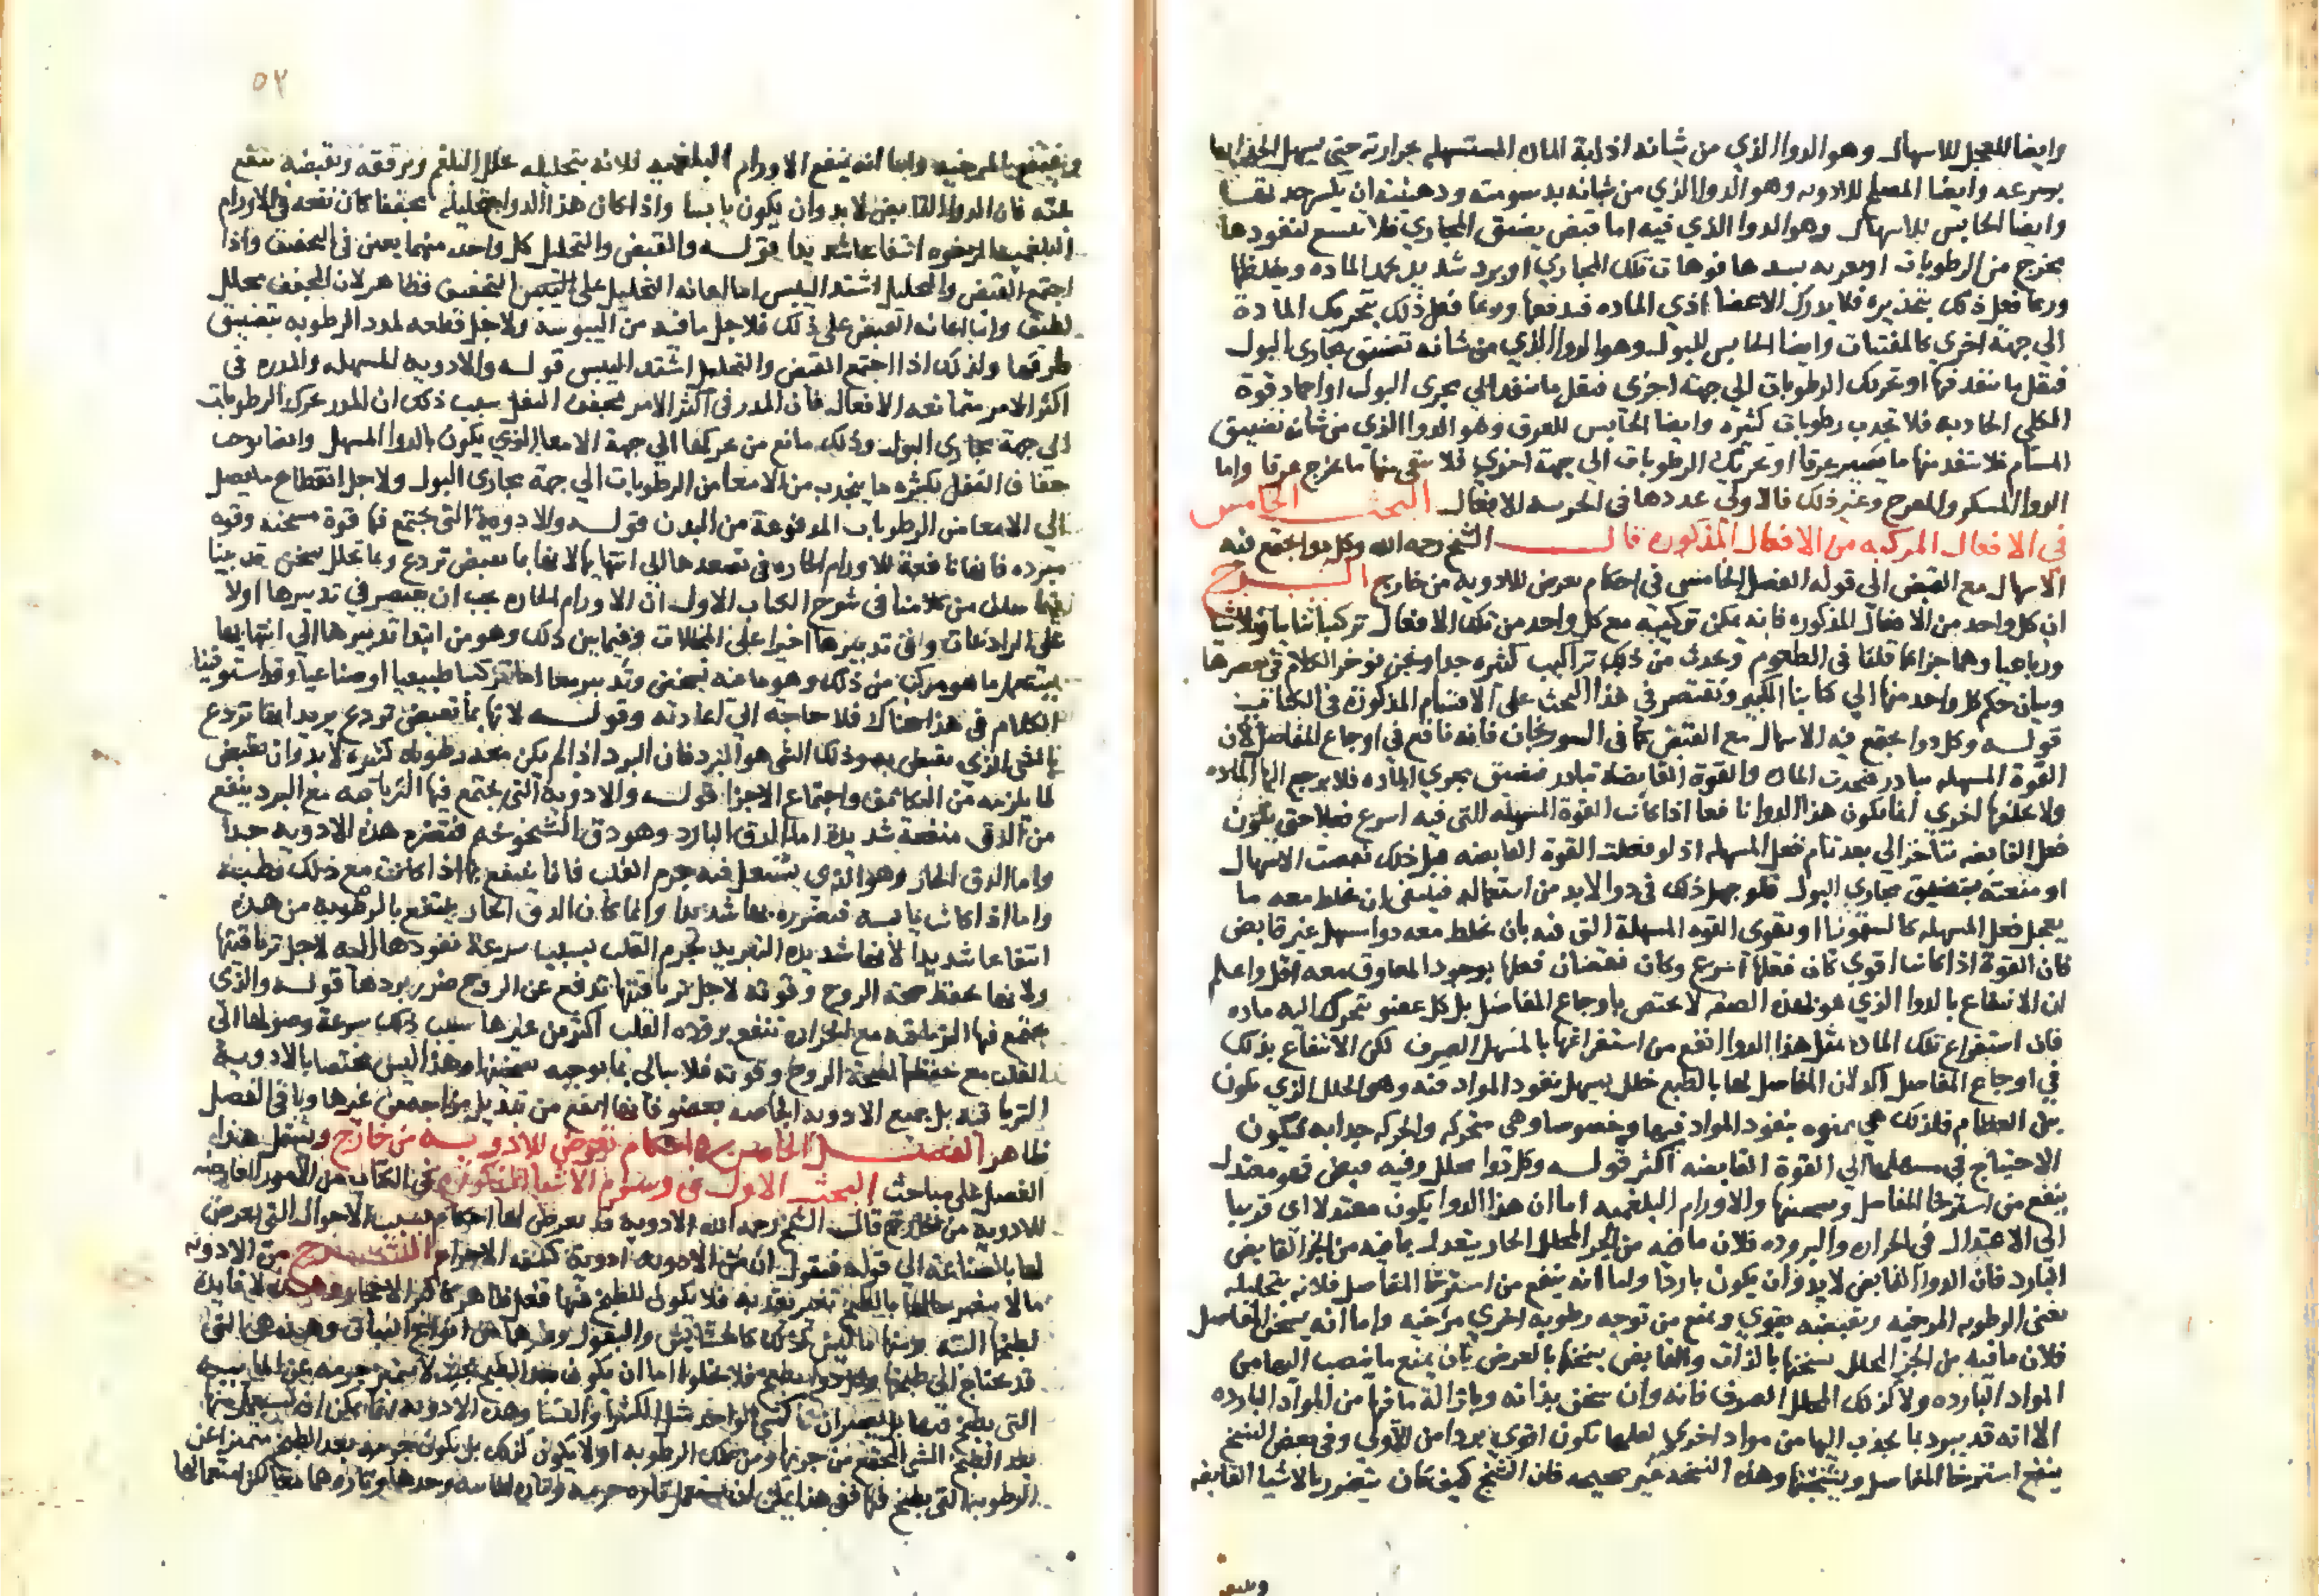 وايضا المعجل للاسهال وهو الدوا الذي من شانه اذابة الماده المستسهله بحرارته حتي يسهل
بسرعه وايضا المصلح للادويه وهو الدوا الذي من شانه بدسومته ودهنيته ان يكسر حد
وايضا الحابس للاسهال وهو الدوا الذي فيه اما قبض يضيق المجاري فلا تتسع لنفوذ ما
يخرج من الرطوبات او تغريه يسد بها فوهات تلك المجاري او برد شديد يجمد الماده ويغلظها
وربما فعل ذلك بتخديره فلا يدرك الاعضا اذي الماده فيدفعها وربما فعل ذلك بتحريك المادة
الي جهة اخري كالمقيات وايضا الحابس للبول وهو الدوا الذي من شانه تضييق مجاري البول
فيقل ما ينفذ فيها او تحريك الرطوبات الي جهة اخري فيقل ما ينفذ الي مجري البول او اخماد قوة
الكلي الجاذبه فلا تجذب رطوبات كثيره وايضا الحابس للعرق وهو الدوا الذي من شانه تضييق
المسام فلا ينفذ منها ما يصير عرقا او تحريك الرطوبات الي جهة اخري فلا يبقي منها ما يخرج عرقا واما
الدوا المسكر والمفرح وغير ذلك فالاولي عددها في الافعال البحث الخامس
في الافعال المركبه من الافعال المذكوره قال الشيخ رحمه الله وكل دوا يجتمع فيه
الاسهال مع القبض الي قوله الفصل الخامس في احكام تعرض للادوية من خارج الشرح
ان كل واحد من الافعال المذكوره فانه يمكن تركيبه مع كل واحد من تلك الافعال تركيبا ثنايا وثلاثيا
ورباعيا وهلم جرا كما قلنا في الطعوم ويحدث من ذلك تراكيب كثيره جدا ونحن نوخر الكلام في حصرها
وبيان حكم كل واحد منها الي كتابنا الكبير ونقتصر في هذا البحث علي الاقسام المذكورة في الكتاب
قوله وكل دوا يجتمع فيه الاسهال مع القبض كما في السورنجان فانه نافع في اوجاع المفاصل لان
القوة المسهله تبادر فتجذب الماده والقوة القابضه تبادر فتضيق مجري الماده فلا يرجع اليها الماده
ولا يخلفها اخري انما يكون هذا الدوا نافعا اذا كانت القوة المسهله التي فيه اسرع فعلا حتي يكون
فعل القابضه متاخرا الي بعد تمام فعل المسهله اذ لو فعلت القوة القابضه قبل ذلك الاسهال
او منعته بتضييق مجاري البول فلو جهل ذلك في دوا لابد من استعماله فينبغي ان يخلط معه ما
يعجل فعل المسهله كالسقمونيا او يقوي القوه المسهلة التي فيه بان يخلط معه دوا مسهل غير قابض
فان القوة اذا كانت اقوي كان فعلها اسرع وكان نقصان فعلها بوجود المعاوق معه اقل واعلم
ان الانتفاع بالدوا الذي هو بهذه الصفه لا يختص باوجاع المفاصل بل كل عضو تتحرك اليه ماده
فان استفراغ تلك المادة بمثل هذا الدوا انفع من استفراغها بالمسهل الصرف لكن الانتفاع بذلك
في اوجاع المفاصل اكد لان المفاصل لها بالطبع خلل يسهل نفوذ المواد فيه وهو الخلل الذي يكون
بين العظام فلذلك هي ممنوه بنفوذ المواد فيها وخصوصا وهي متحركه والحركه جذابه فيكون
الاحتياج في تسهيلها الي القوة القابضه اكثر قوله وكل دوا محلل وفيه قبض فهو معتدل
ينفع من استرخا المفاصل وتسخينها والاورام البلغميه اما ان هذا الدوا يكون معتدلا اي قريبا
الي الاعتدال في الحراره والبروده فلان ما فيه من الجز المحلل الحار يتعدل بما فيه من الجز القابض
البارد فان الدوا القابض لابد وان يكون باردا واما انه ينفع من استرخا المفاصل فلانه بتحليله
يفني الرطوبه المرخيه وبقبضه يقوي ويمنع من توجه رطوبه اخري مرخيه واما انه يسخن المفاصل
فلان ما فيه من الجز المحلل يسخنها بالذات والقابض يسخنها بالعرض بان يمنع ما ينصب اليها من
المواد البارده ولا كذلك المحلل الصرف فانه وان سخن بذاته وبازالة ما فيها من المواد البارده
الا انه قد يبرد بما يجذب اليها من مواد اخري لعلها تكون اقوي بردا من الاولي وفي بعض النسخ
ينفع استرخا المفاصل وتشنجها وهذه النسخه غير صحيحه فان التشنج كيف كان يتضرر بالاشيا القابضه
٥٢
وينتفع بالمرخيه واما انه ينفع الاورام البلغميه فلانه بتحليله يحلل البلغم ويرققه وبقبضه يمنع
عنه فان الدوا القابض لابد وان يكون يابسا واذا كان هذا الدوا بتحليله مجففا كان نفعه في الاورام
البلغميه الرخوه انتفاعا شديدا قوله والقبض والتحليل كل واحد منهما يعين في التجفيف واذا
اجتمع القبض والتحليل اشتد اليبس اما اعانه التحليل علي التجفيف فظاهر لان المجفف محلل
لطيف واما اعانه القبض علي ذلك فلاجل ما فيه من اليبوسة ولاجل قطعه لمدد الرطوبه بتضييق
طرقها ولذلك اذا اجتمع القبض والتحليل اشتد اليبس قوله والادويه المسهله والمدره في
اكثر الامر متمانعه الافعال فان المدر في اكثر الامر يجفف الثفل سبب ذلك ان المدر يحرك الرطوبات
الي جهة مجاري البول وذلك مانع من تحركها الي جهة الامعا الذي يكون بالدوا المسهل وايضا يوجب
جفاف الثفل بكثره ما يجذب من الامعا من الرطوبات الي جهة مجاري البول ولاجل انقطاع ما يصل
الي الامعا من الرطوبات المدفوعة من البدن قوله والادوية التي يجتمع فيها قوة مسخنه وقوه
مبرده فانها نافعة للاورام الحاره في تصعدها الي انتهايها لانها بما تقبض تردع وبما تحلل تسخن قد بينا
فيما سلف من كلامنا في شرح الكتاب الاول ان الاورام الحاره يجب ان يقتصر في تدبيرها اولا
علي الرادعات وفي تدبيرها اخيرا علي المحللات وفيما بين ذلك وهو من ابتدا تدبيرها الي انتهايها
يستعمل ما هو مركب من ذلك وهو ما فيه قبض وتحليل معا اما تركيبا طبيعيا او صناعيا وقد استوفينا
الكلام في هذا هناك فلا حاجة الي اعادته وقوله لانها بما تقبض تردع يريد انها تردع
بالشي الذي تقبض به وذلك الشي هو البرد فان البرد اذا لم يكن معه رطوبه كثيره لابد وان يقبض
لما يلزمه من التكاثف واجتماع الاجزا قوله والادوية التي يجتمع فيها الترياقيه مع البرد ينفع
من الدق منفعة شديدة اما الدق البارد وهو دق الشيخوخه فتضره هذه الادويه جدا
واما الدق الحار وهو الذي يشتعل فيه جرم القلب فانما ينتفع بها اذا كانت مع ذلك رطبة
واما اذا كانت يابسه فتضرره بها شديدا وانما كان الدق الحار ينتفع بالرطوبه من هذه
انتفاعا شديدا لانها شديدة التبريد لجرم القلب بسبب سرعة نفوذها اليه لاجل ترياقيتها
ولانها تحفظ صحة الروح وقوته لاجل ترياقيتها تدفع عن الروح ضرر بردها قوله والذي
يجتمع فيها الترياقيه مع الحراره تنفع بروده القلب اكثر من غيرها سبب ذلك سرعة وصولها الي
القلب مع حفظها لصحة الروح وقوته فلا يبالي بما يوجبه تسخينها وهذا ليس مختصا بالادوية
الترياقيه بل جميع الادويه الخاصه بعضو فانها انفع من تعديل مزاجه من غيرها وباقي الفصل
ظاهر الفصل الخامس في احكام تعرض للادويه من خارج ويشتمل هذا
الفصل علي مباحث البحث الاول في الاشيا المذكوره في الكتاب من الامور العارضه
للادوية من خارج قال الشيخ رحمه الله الادوية قد يعرض لها احكام بسبب الاحوال التي تعرض
لها بالصناعة الي قوله فنقول ان من الادويه ادوية كثيفه الاجرام الشرح من الادويه
ما لا يتغير حالها بالطبخ تغيرا يعتد به فلا يكون للطبخ فيها فعل ظاهر كاكثر الاحجار وهذه لا فايدة
لطبخها البته ومنها ما ليس كذلك كالحشايش والبقول وغيرها من انواع النبات وهذه هي التي
قد يحتاج الي طبخها وكل دوا يطبخ فلا يخلوا اما ان يكون بعد الطبخ بحيث لا يتميز جرمه عن المايية
التي يطبخ فيها بل يصيران كشي واحد مثل الكثيرا والنشا وهذه الادويه انما يمكن ان يستعمل منها
بعد الطبخ الشي المجتمع من جرمها ومن تلك الرطوبه او لا يكون كذلك بل يكون جرمه بعد الطبخ متميزا عن
الرطوبه التي يطبخ فيها فهي هذا يمكن ان يستعمل تاره جرمه وتاره المايية وحدها وتاره هما معا لكن استعمالها